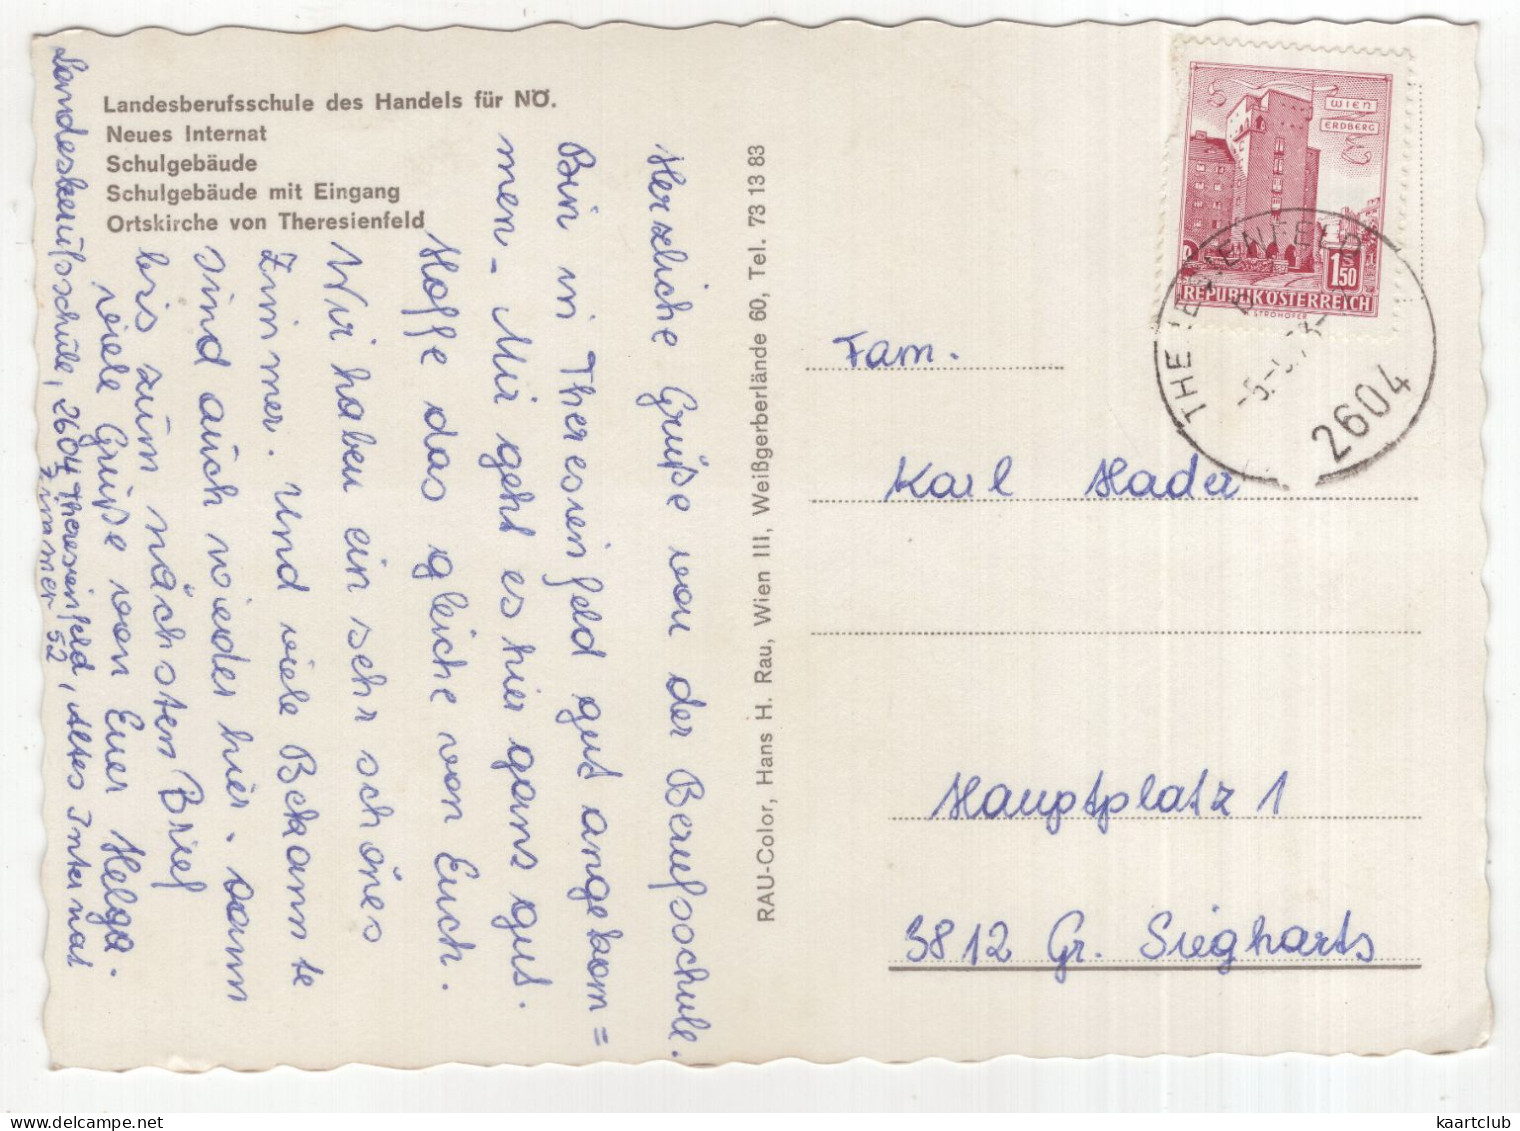 Landesberufsschule des Handels für NÖ.
Neues Internat
Schulgebäude
Schulgebäude mit Eingang
Ortskirche von Theresienfeld
Herzliche Grüße von der Berufsschule.
Bin in Theresienfeld gut angekom=
men - Mir geht es hier ganz gut.
Hoffe das gleiche von Euch.
Wir haben ein sehr schönes
Zimmer. Und viele Bekannte
sind auch wieder hier. Dann
bis zum nächsten Brief
viele Grüße von Eurer Helga.
Landesberufsschule, 2604 Theresienfeld, Altes Internat
Zimmer 52
RAU-Color, Hans H. Rau, Wien III, Weißgerberlände 60, Tel. 73 13 83
WIEN
ERDBERG
1.50
REPUBLIK ÖSTERREICH
STROHOFER
THERESIENFELD
2604
Fam.
Karl Hader
Hauptplatz 1
3812 Gr. Siegharts
kaartclub